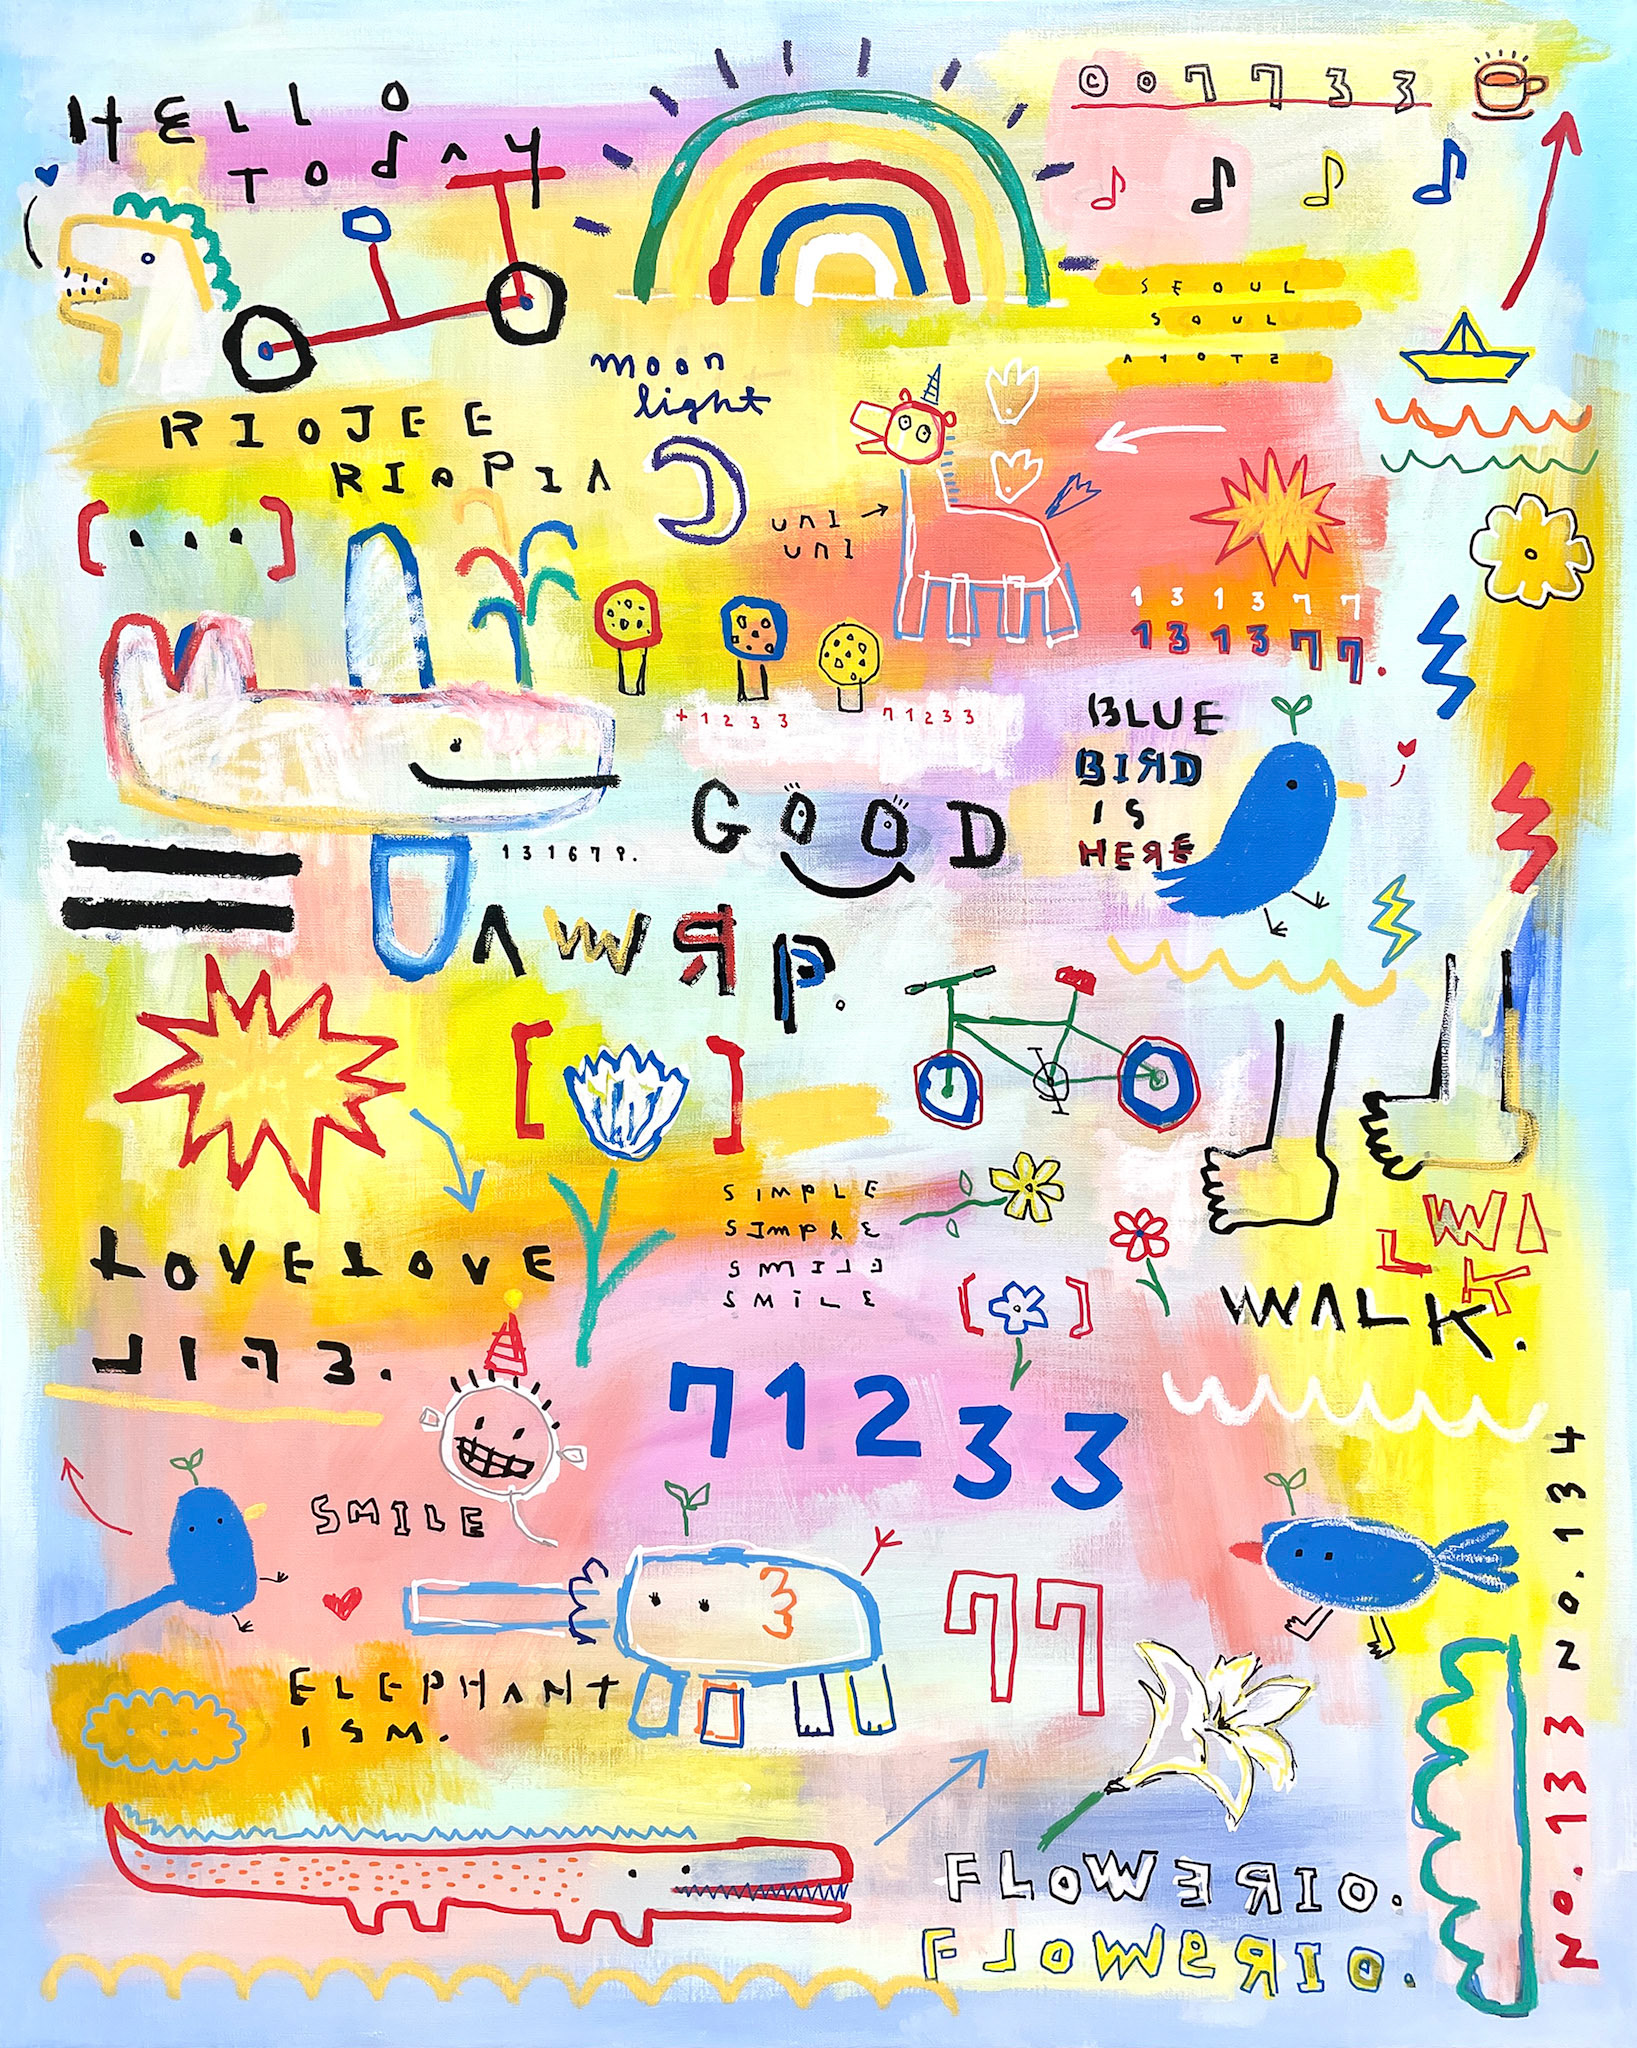 HELLO
TODAY
©07733
SEOUL
SOUL
moon
light
RIOJEE
RIOPIA
[...]
UNI
UNI
131377
131377.
+1233 71233
BLUE
BIRD
IS
HERE
GOOD
131679.
AWRP.
SIMPLE
SIMPLE
SMILE
SMILE
LOVELOVE
LIFE.
WALK
WALK.
71233
SMILE
77
ELEPHANT
ISM.
NO.133 NO.134
FLOWERIO.
FLOWERIO.